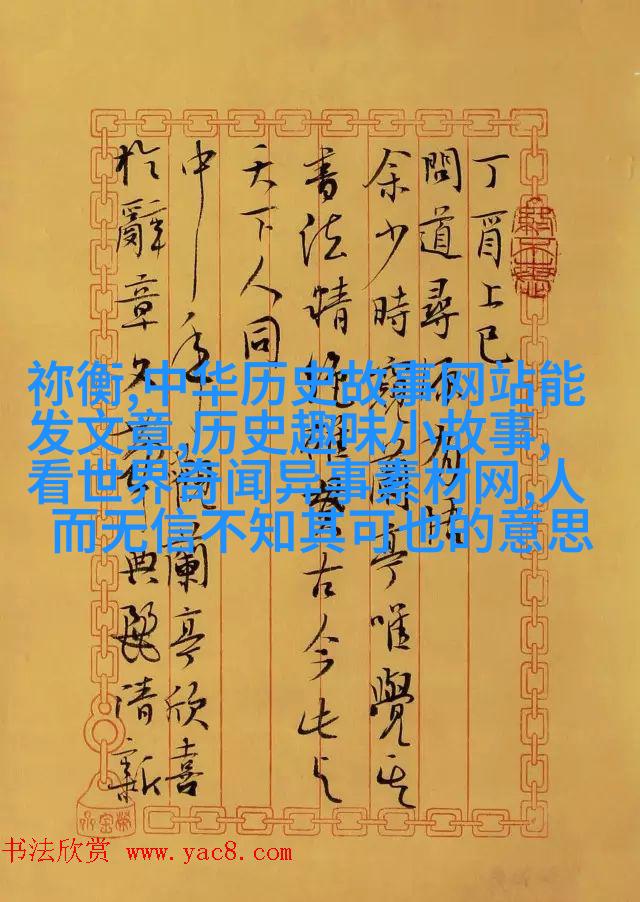 丁酉上巳
問道尋源有悟
余少時觀蘭亭唯覺其
書法精絕雄古今此与
天下人同
中年觀蘭亭欣喜
於辭章文典麗清新
祢衡,中华历史故事网站能
发文章,历史趣味小故事,
看世界奇闻异事素材网,人
而无信不知其可也的意思
书法欣赏 www.yac8.com